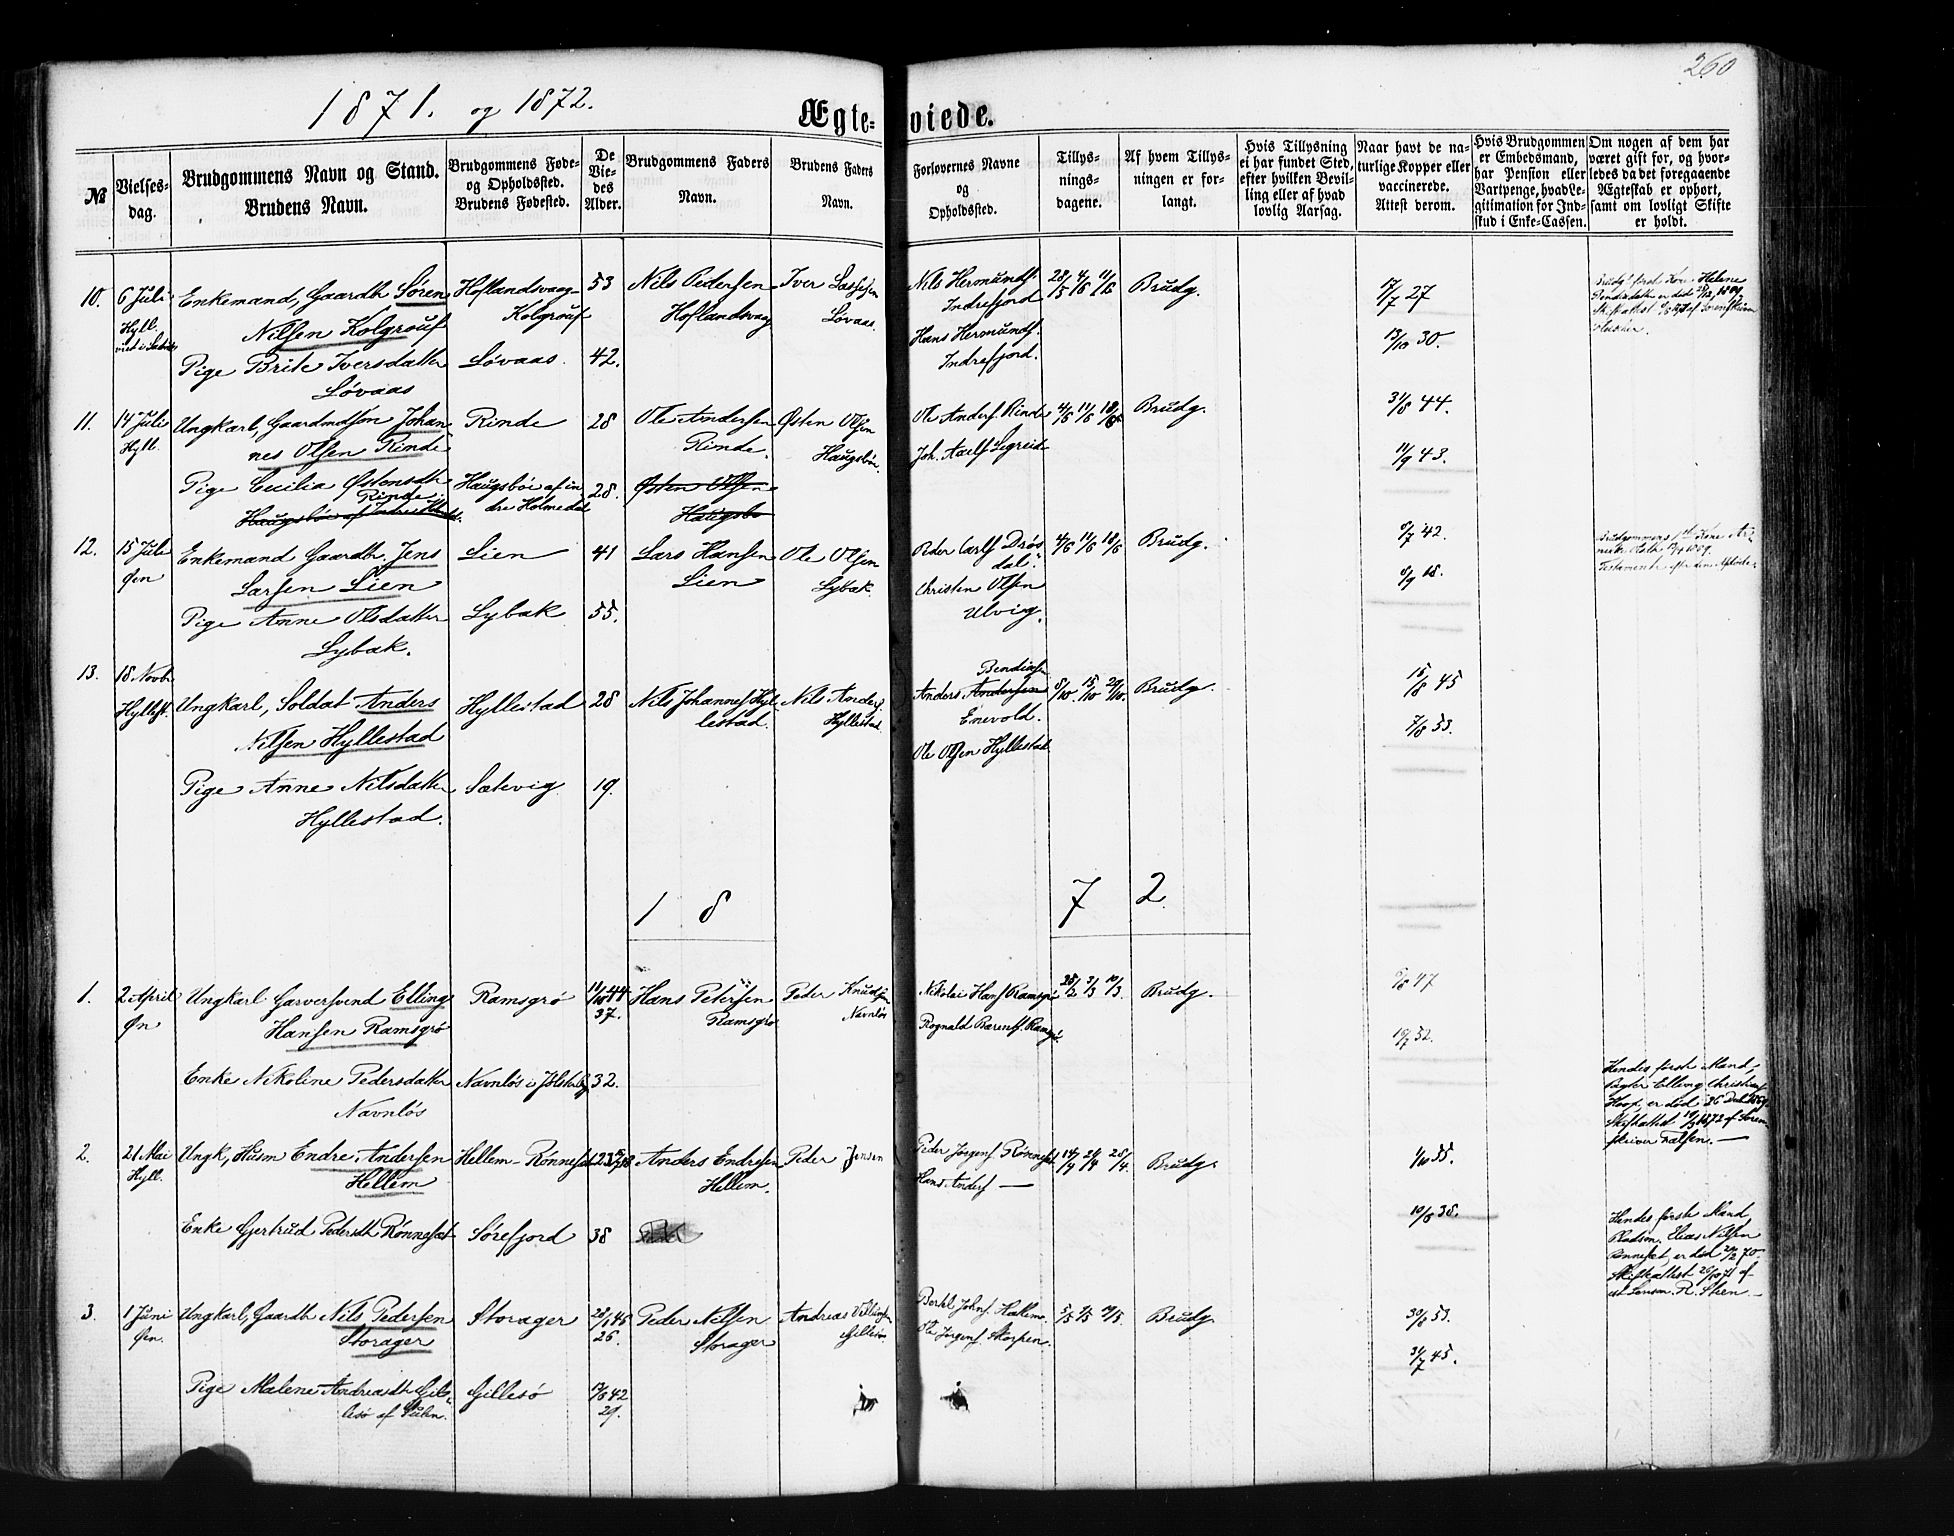 260
1871. og 1872.
Ægte-
viede.
No
Vielses-
dag.
Brudgommens Navn og Stand.
Brudens Navn.
Brudgommens Føde-
og Opholdssted.
Brudens Fødested.
De
Vie-
des
Alder.
Brudgommens Faders
Navn.
Brudens Faders
Navn.
Forlovernes Navne
og
Opholdssted.
Tillys-
nings-
dagene.
Af hvem Tillys-
ningen er for-
langt.
Hvis Tillysning
ei har fundet Sted,
efter hvilken Bevil-
ling eller af hvad
lovlig Aarsag.
Naar havt de na-
turlige Kopper eller
vaccinerede.
Attest derom.
Hvis Brudgommen
er Embedsmand,
har Pension eller
Vartpenge, hvad Le-
gitimation for Ind-
skud i Enke-Cassen.
Om nogen af dem har
været gift før, og hvor-
ledes da det foregaaende
Ægteskab er ophørt,
samt om lovligt Skifte
er holdt.
10.
6 Juli
Hyll.
Enkemand, Gaardb. Søren
Nilsen Kolgrouf
Pige Brite Iversdatter
Løvaas
Hoflandsvaag
Kolgrouf
Løvaas.
53
42.
Nils Pedersen
Hoflandsvaag
Iver Lassesen
Løvaas.
Nils Hermundf.
Indrefjord
Hans Hermundf.
Indrefjord.
28/5 4/6 11/6
Brudg.
27
13/10 30.
11.
14 Juli
Hyll.
Ungkarl, Gaardmdsøn Johan
nes Olsen Rinde
Pige Cecilia Østensdt
Rinde
Rinde
Haugsbøe af in
dre Holmedal
28
28.
Ole Andersen
Rinde.
Østen Olsen
Haugsbø
Østen Olsen
Haugsbøe.
Ole Andersf. Rinde
4/6 11/6 18/6
Brudg.
31/8 44.
11/9 43.
12.
15 Juli
Øen
Enkemand Gaardb. Jens
Larsen Lien
Pige Anne Olsdatter
Lybak.
Lien
Lybak
41
55.
Lars Hansen
Lien
Ole Olsen
Lybak.
Peder Carlf Drøs
dal.
Christen Olsen
Ulvig.
4/6 11/6 18/6
Brudg.
/7 42.
/9 18.
13.
18 Novb.
Hyllest.
Ungkarl, Soldat Anders
Nilsen Hyllestad
Pige Anne Nilsdatter
Hyllestad.
Hyllestad
Sætevig
28
19.
Nils Johannesf Hyl
lestad.
Nils Andersf.
Hyllestad.
Bendixen
Anders Andersen
Enevold.
Ole Olsen Hyllestad
8/10. 15/10 29/10.
Brudg.
15/8 45
7/8 53.
1 8 7 2.
1.
2 April
Øn
Ungkarl Garversvend Elling
Hansen Ramsgrø
Enke Nikoline Pedersdatter
Navnløs
Ramsgrø
Navnløs i Jølster
11/10 44
37.
32.
Hans Petersen
Ramsgrø
Peder Knudsen
Navnløs
Nikolai Hansf Ramsgrø
Rognald Barentsf. Ramsgrø.
25/2 3/3 10/3.
Brudg.
/8 47
19/7 52.
Hendes første Mand,
Elling Christians
er død 26 1869.
Skifteattest 19/3 1872 af Soren
skriver
2.
21 Mai
Hyll.
Ungk, Husm Endre Andersen
Hellem
Enke Gjertrud Pedersdt Rønneset
Hellem - Rønneset
Sørefjord
38
Anders Endresen
Hellem.
Peder Jensen
Peder Jørgenf. Rønneset
Hans Andersf —
14/4 21/4 28/4.
Brudg.
/10 55.
10/8 38.
Hendes første Mand
Pladsm. Elias Nilsen
Rønneset, er død /2 70.
Skifteattest 26/10 71 af
3.
1 Juni
Øen.
Ungkarl, Gaardb Nils Pedersen
Storager
Pige Malene Andreasdt Gil-
lesø af Sulen.
Storager
Gillesø
28/1 46
26.
42
29.
Peder Nilsen
Storager
Andreas Villumsen
Gillesø.
Bertel Johnf. Hatlem.
Ole Jørgenf. Skorpen.
Brudg.
30/8 53.
31/7 45.